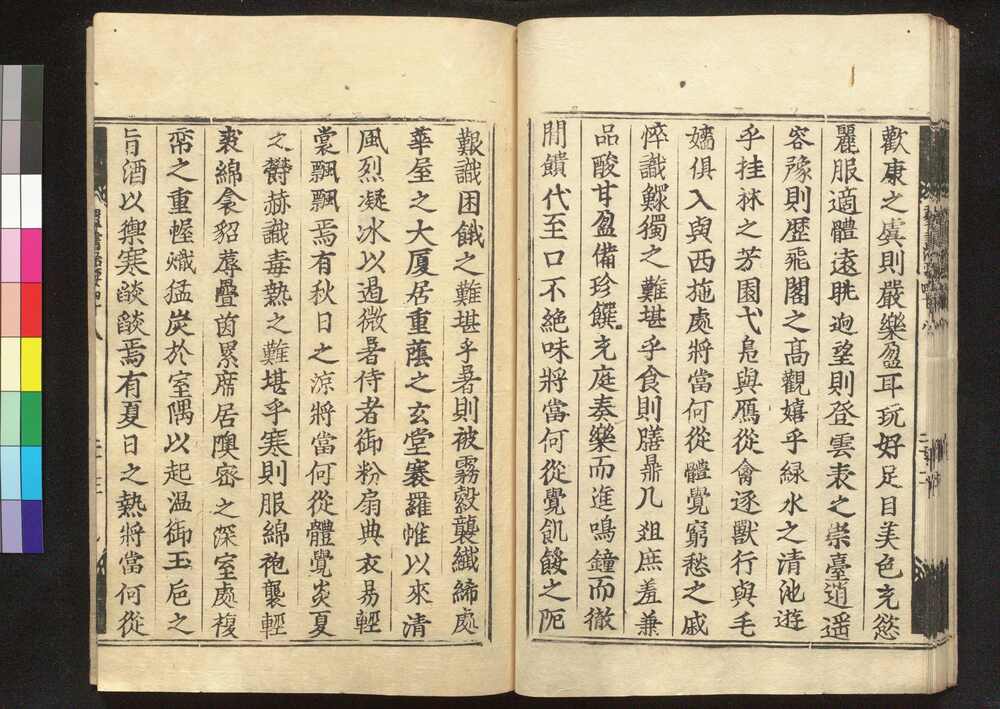 歡康之虞則嚴樂盈耳玩好足目美色充慾
麗服適體遠眺逈望則登雲表之崇臺逍遥
容豫則歷飛閣之高觀嬉乎緑水之清池遊
乎挂林之芳園弋鳧與鴈從禽逐獸行與毛
嬙俱入與西施處將當何從體覺窮愁之戚
悴識鰥獨之難堪乎食則膳鼎几爼庶羞兼
品酸甘盈備珍饌充庭奏樂而進鳴鐘而徹
間饋代至口不絶味將當何從覺飢餒之阨
艱識困餓之難堪乎暑則被霧縠襲纖絺處
華屋之大厦居重䕃之玄堂褰羅帷以來清
風烈凝冰以遏微暑侍者御粉扇典衣易輕
裳飄飄焉有秋日之涼將當何從體覺炎夏
之欝赫識毒熱之難堪乎寒則服綿袍襲輕
裘綿衾貂蓐疊茵累席居隩密之深室處複
帟之重幄熾猛炭於室隅以起温御玉卮之
旨酒以禦寒燄燄焉有夏日之熱將當何從